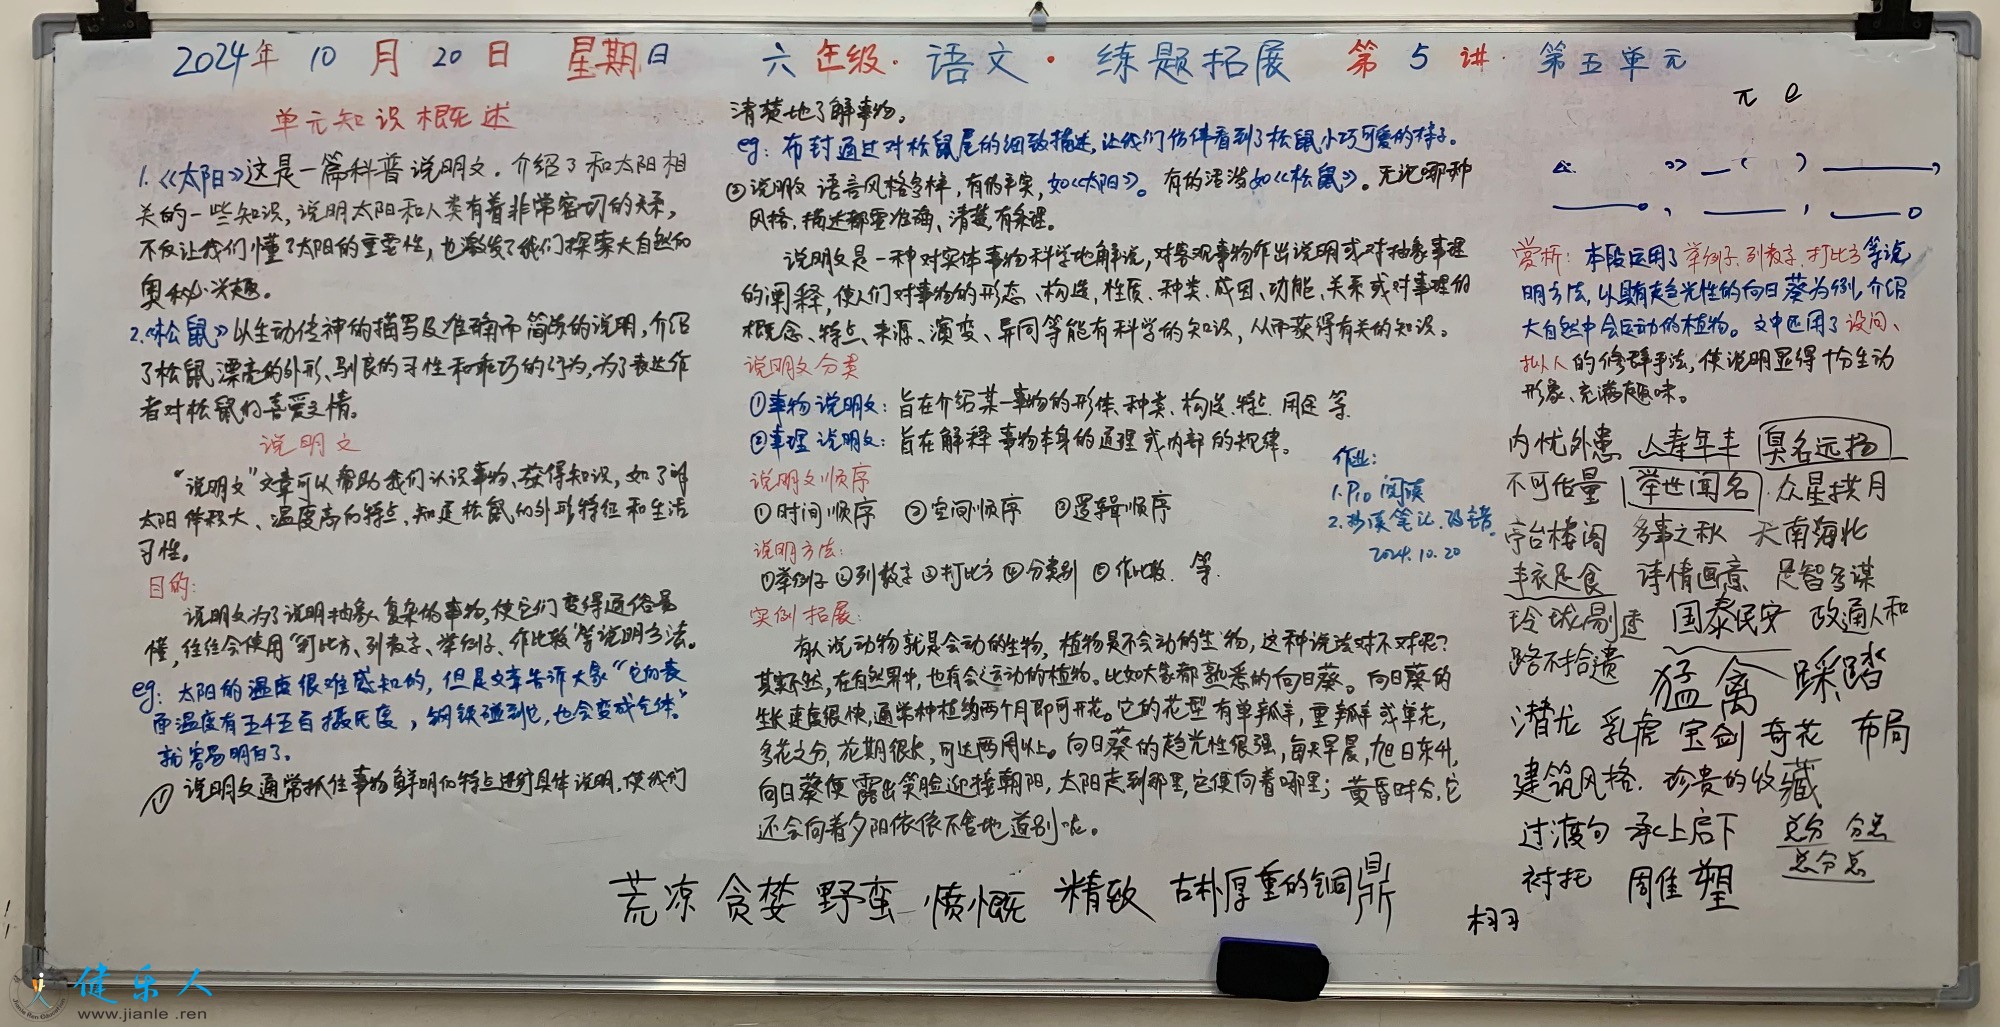 2024年 10月 20日 星期日 六年级·语文·练题拓展 第5讲·第五单元
单元知识概述
1.《太阳》这是一篇科普说明文。介绍了和太阳相
关的一些知识，说明太阳和人类有着非常密切的关系，
不仅让我们懂了太阳的重要性，也激发了我们探索大自然的
奥秘兴趣。
2.《松鼠》以生动传神的描写及准确而简练的说明，介绍
了松鼠漂亮的外形、驯良的习性和乖巧的行为，为了表达作
者对松鼠的喜爱之情。
说明文
“说明文”文章可以帮助我们认识事物、获得知识，如了解
太阳体积大、温度高的特点、知道松鼠的外形特征和生活
习性。
目的：
说明文为了说明抽象、复杂的事物，使它们变得通俗易
懂，往往会使用“打比方、列数字、举例子、作比较”等说明方法。
eg：太阳的温度很难感知的，但是文章告诉大家“它的表
面温度有五千五百摄氏度，钢铁碰到它，也会变成气体”
就容易明白了。
① 说明文通常抓住事物鲜明的特点进行具体说明，使我们
清楚地了解事物。
eg：布封通过对松鼠尾的细致描述，让我们仿佛看到了松鼠小巧可爱的样子。
②说明文 语言风格多样，有的平实，如《太阳》。有的活泼如《松鼠》。无论哪种
风格，描述都要准确、清楚、有条理。
说明文是一种对实体事物科学地解说，对客观事物作出说明或对抽象事理
的阐释，使人们对事物的形态、构造、性质、种类、成因、功能、关系或对事理的
概念、特点、来源、演变、异同等能有科学的知识，从而获得有关的知识。
说明文分类
①事物说明文：旨在介绍某一事物的形体、种类、构造、特点、用途 等
②事理说明文：旨在解释事物本身的道理或内部的规律。
说明文顺序
①时间顺序 ②空间顺序 ③逻辑顺序
说明方法：
①举例子 ②列数字 ③打比方 ④分类别 ⑤作比较 等
实例拓展：
有人说动物就是会动的生物，植物是不会动的生物，这种说法对不对呢？
其实不然，在自然界中，也有会运动的植物。比如大家都熟悉的向日葵。向日葵的
生长速度很快，通常种植约两个月即可开花。它的花型有单瓣、重瓣或单花，
多花之分，花期很长，可达两周以上。向日葵的趋光性很强，每天早晨，旭日东升，
向日葵便露出笑脸迎接朝阳，太阳走到哪里，它便向着哪里；黄昏时分，它
还会向着夕阳依依不舍地道别呢。
作业：
1.P10 阅读
2.抄读笔记、改错。
2024.10.20
π e
赏析：本段运用了举例子、列数字、打比方等说
明方法，以具有趋光性的向日葵为例，介绍
大自然中会运动的植物。文中运用了设问、
拟人的修辞手法，使说明显得十分生动
形象、充满趣味。
内忧外患 人寿年丰 臭名远扬
不可估量 举世闻名 众星拱月
亭台楼阁 多事之秋 天南海北
丰衣足食 诗情画意 足智多谋
玲珑剔透 国泰民安 政通人和
路不拾遗
猛禽 踩踏
潜龙 乳虎 宝剑 奇花 布局
建筑风格. 珍贵的收藏
过渡句 承上启下 总分 分总
总分总
衬托 周佳 塑
荒凉 贪婪 野蛮 愤慨 精致 古朴厚重的铜鼎
栩
健乐人
www.jianle.ren